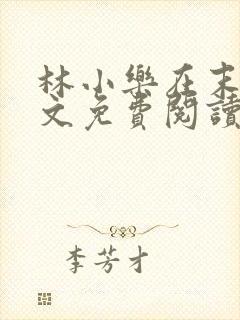 林小樂在末
文免費閱讀
李芳才